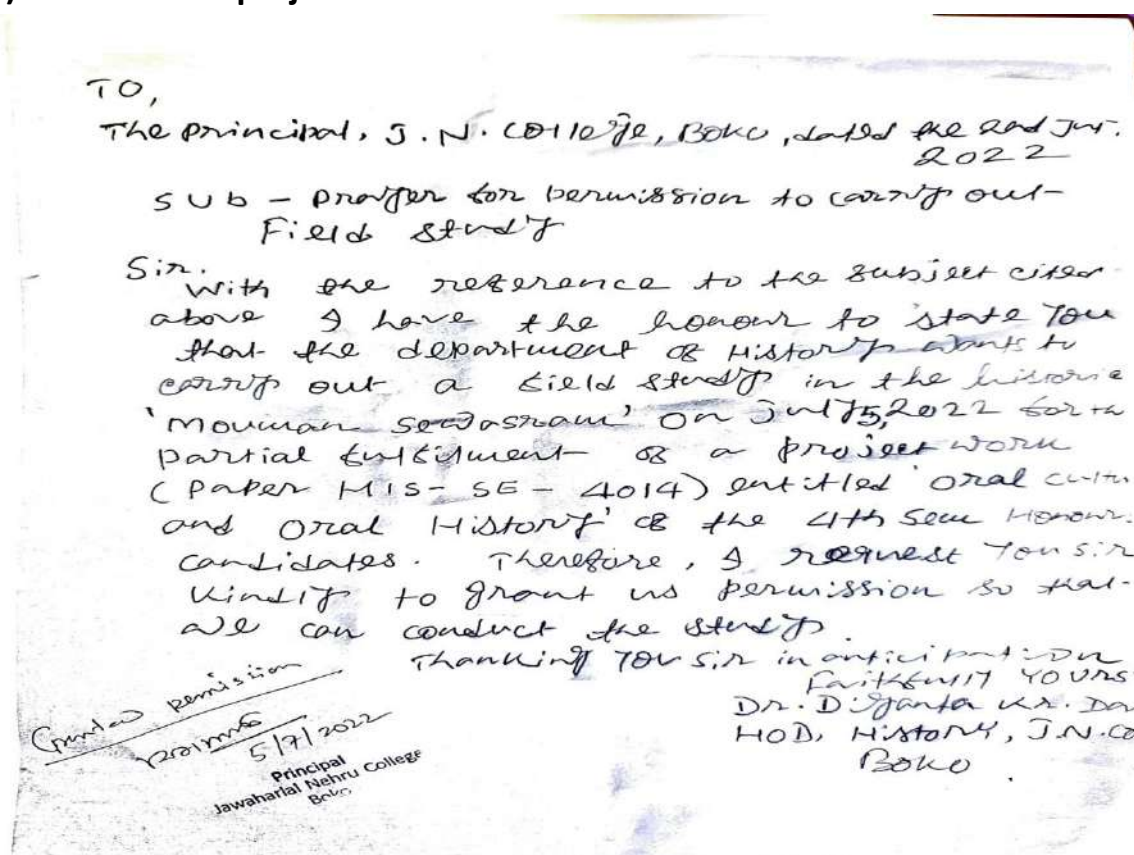 TO,
The principal, J. N. College, Boko, dated the 2nd
2022
Sub - prayer for permission to carry out
Field study
Sir.
With the reference to the subject cited
above I have the honour to state you
that the department of History wants to
carry out a field study in the historic
'Mouman Sevasram' on July 5, 2022 for
partial fulfilment of a project work
(paper HIS-SE-4014) entitled 'oral
and oral History' of the 4th Sem Honour
candidates. Therefore, I request you sir
kindly to grant us permission so that
we can conduct the study.
Thanking you sir in anticipation
Faithfully Yours
Dr. Diganta Kr.
HOD, History, J.N.
Boko.
Granted permission
5/7/2022
Principal
Jawaharlal Nehru College
Boko